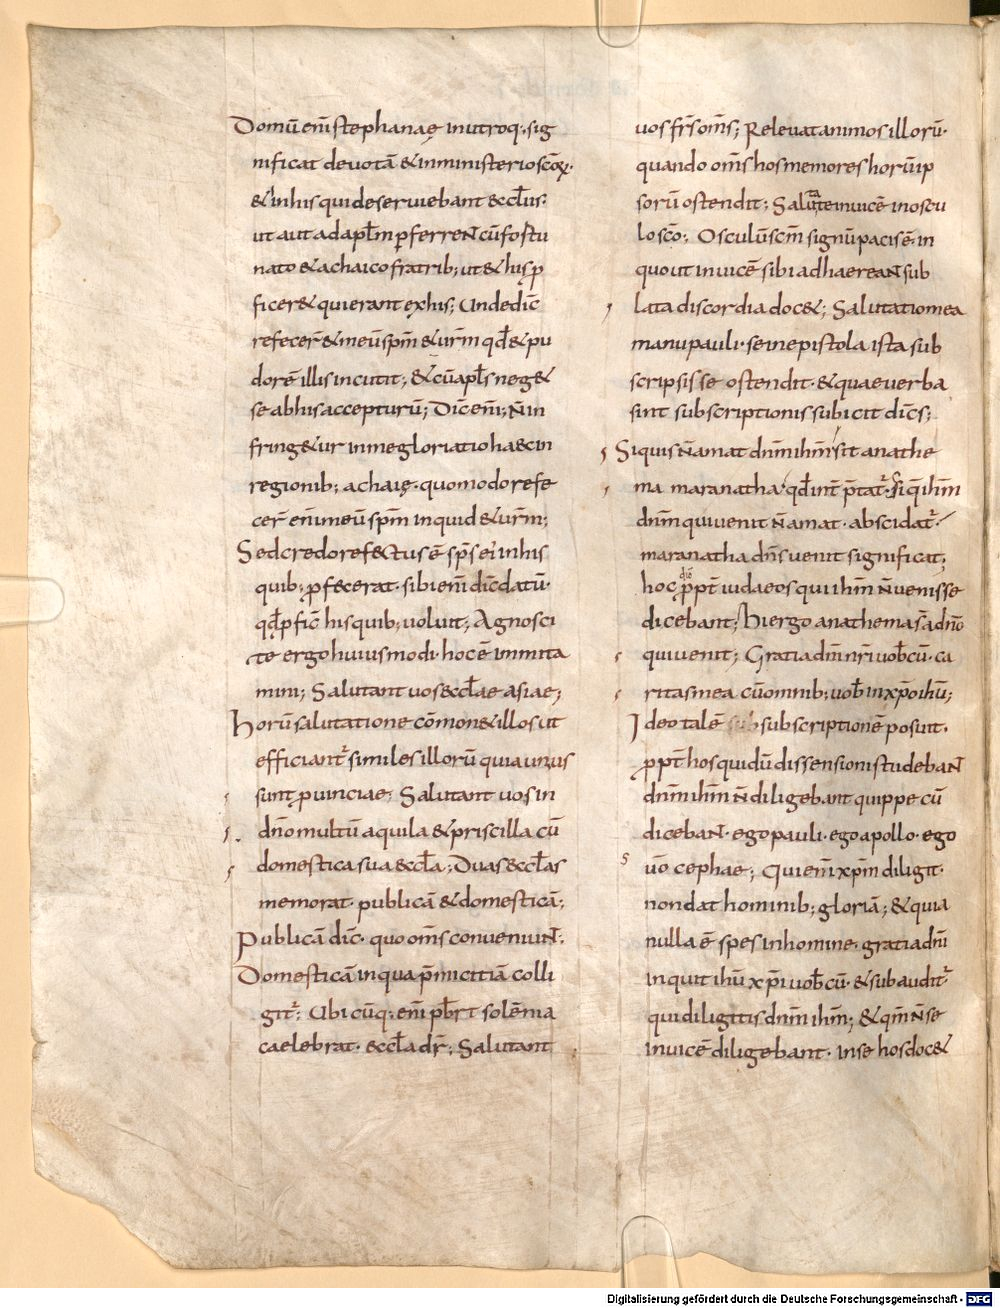 Domū eni͞ stephanae inutroq; sig
nificat deuotā & inministerio sc̄oꝝ.
& in his qui deseruiebant eccl̄iis;
ut aut ad apl̄m ꝑferreNt cū fostu
nato & achaico fratrib; ut & his ꝓ
ficer& quierant ex his; Unde dic̄
refecer̄ & meū sp̄m & ur̄m qd̄ & pu
dorē illis incutit; & cū apl̄s neg&
se abhis accepturū; Dic̄ eni͞; N̄ in
fring&ur inme gloriatio haec in
regionib; achaię. quomodo refe
cer̄ eni͞ meū sp̄m inquid & ur̄m;
Sed credo refectus ē sp̄s ei inhis
quib; ꝓfecerat. sibi eni͞ dic̄ datū.
qd̄ ꝓfic̄ his quib; uoluit; Agnosci
te ergo huiusmodi. hoc ē immita
mini; Salutant uos eccl̄ae asiae;
horū salutatione cōmon& illos ut
efficiant᷑ similes illorū quia unius
sunt ꝓuinciae; Salutant uos in
dn̄o multū aquila & priscilla cū
domestica sua eccl̄a; Duas eccl̄as
memorat. publicā & domesticā;
Publicā dic̄. quo om̄s conueniuNt.
Domesticā in qua ꝑ amicitiā colli
git᷑; Ubi cūq; eni͞ pb̄rt solēnia
caelebrat. eccl̄a dr̄; Salutant
uos fr̄s om̄s; Releuat animos illorū.
quando om̄s hos memores horū ip
sorū ostendit; Salutate inuicē inoscu
lo sc̄o; Osculū sc̄m signū pacis ē. in
quo ut inuicē sibi adhaereaNt sub
lata discordia doc&; Salutatio mea
manu pauli. se inepistola ista sub
scripsisse ostendit. & quae uerba
sint subscriptionis subicit dic̄s;
Siquis n̄ amat dn̄m ihm̄ sit anathe
ma maranatha. qd̄ int̄ p̄tat᷑. si q̄ ihm̄
dn̄m qui uenit n̄ amat. abscidat᷑.
maranatha dn̄s uenit significat;
hoc ꝓpt̄ iudaeos qui ihm̄ n̄ uenisse
dicebant; hi ergo anathema s̄ a dn̄o
qui uenit; Gratia dn̄i nr̄i uob̄cū. ca
ritas mea cū omnib; uob̄ inxp̄o ihū;
Ideo talē subscriptionē posuit.
ꝓpt̄ hos qui dū dissensioni studebaNt
dn̄m ihm̄ n̄ diligebant quippe cū
dicebaNt. ego pauli. ego apollo. ego
uō cephae; Qui eni͞ xp̄m diligit.
non dat hominib; gloriā; & quia
nulla ē spes inhomine. gratia dn̄i
inquit ihū xp̄i uob̄cū. & subaudit᷑
qui diligitis dn̄m ihm̄; & qm̄ n̄ se
inuicē diligebant. inse hos doc&
Digitalisierung gefördert durch die Deutsche Forschungsgemeinschaft - DFG